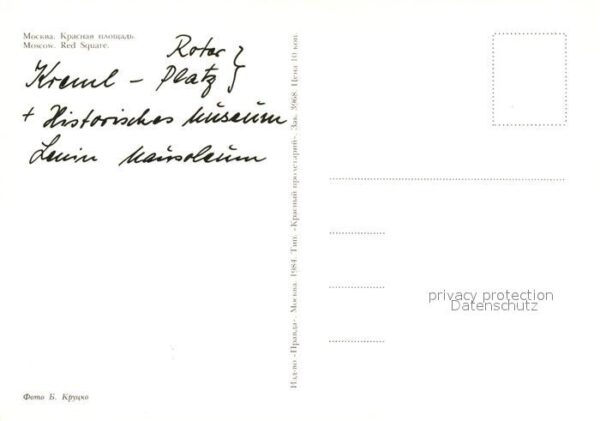 Москва. Красная площадь.
Moscow. Red Square.
Roter }
Kreml – Platz }
+ Historisches Museum
Lenin Mausoleum
Изд-во «Правда». Москва. 1984. Тип. «Красный пролетарий». Зак. 3968. Цена 10 коп.
privacy protection
Datenschutz
Фото Б. Круцко